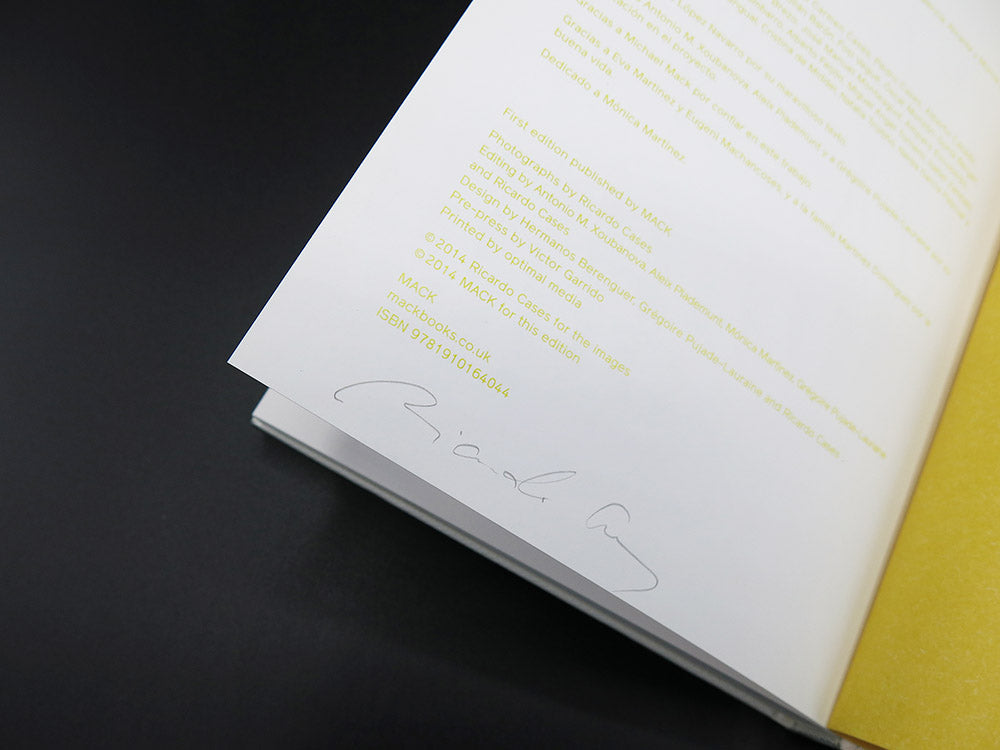 López Navarro por su maravilloso texto.
Antonio M. Xoubanova, Aleix Plademunt y a Grégoire Pujade-Lauraine por su
en el proyecto.
Gracias a Michael Mack por confiar en este trabajo.
Gracias a Eva Martínez y Eugeni Macharcoses, y a la familia Martínez
buena vida.
Dedicado a Mónica Martínez.
First edition published by MACK
Photographs by Ricardo Cases
Editing by Antonio M. Xoubanova, Aleix Plademunt, Mónica Martínez, Grégoire Pujade-Lauraine
and Ricardo Cases
Design by Hermanos Berenguer, Grégoire Pujade-Lauraine and Ricardo Cases.
Pre-press by Víctor Garrido
Printed by optimal media
© 2014 Ricardo Cases for the images
© 2014 MACK for this edition
MACK
mackbooks.co.uk
ISBN 9781910164044
Ricardo Cases